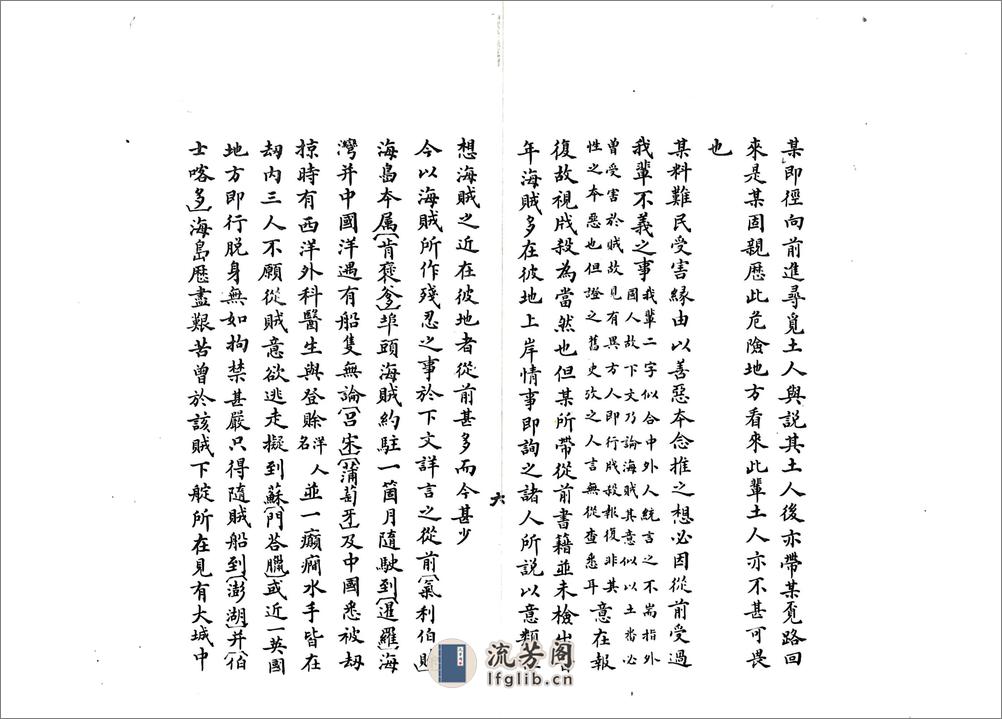 某即徑向前進尋覓土人與說其土人後亦帶某覓路回
來是某固親歷此危險地方看來此輩土人亦不甚可畏
也
某料難民受害緣由以善惡本念推之想必因從前受過
我輩不義之事我輩二字似合中外人統言之不耑指外國人故下文乃論海賊其意似以土番必
曾受害於賊故見有異方人即行戕殺報復非其性之本惡也但證之舊史攷之人言無從查悉耳意在報
復故視戕殺為當然也但某所帶從前書籍並未檢出
年海賊多在彼地上岸情事即詢之諸人所說以意類
六
想海賊之近在彼地者從前甚多而今甚少
今以海賊所作殘忍之事於下文詳言之從前氣利伯
海島本屬肯褒爹埠頭海賊約駐一箇月隨駛到暹羅海
灣并中國洋遇有船隻無論呂宋蒲萄牙及中國悉被劫
掠時有西洋外科醫生與登賒洋名人並一癲癇水手皆在
劫內三人不願從賊意欲逃走擬到蘇門荅臘或近一英國
地方即行脫身無如拘禁甚嚴只得隨賊船到澎湖并伯
士喀多海島歷盡艱苦曾於該賊下碇所在見有大城中
流芳阁
lfglib.cn